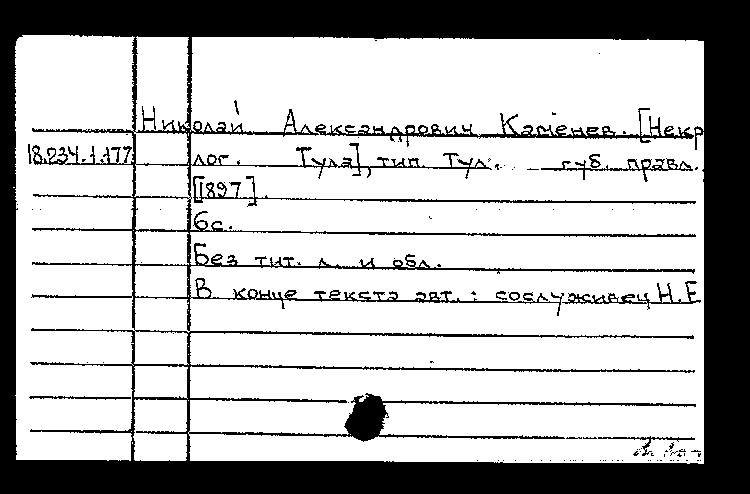 Николай Александрович Каменев. [Некр
18.234.1.177 лог. Тула], тип. Тул. губ. правл.
[1897].
6с.
Без тит. л. и обл.
В конце текста авт.: сослуживец Н.Е